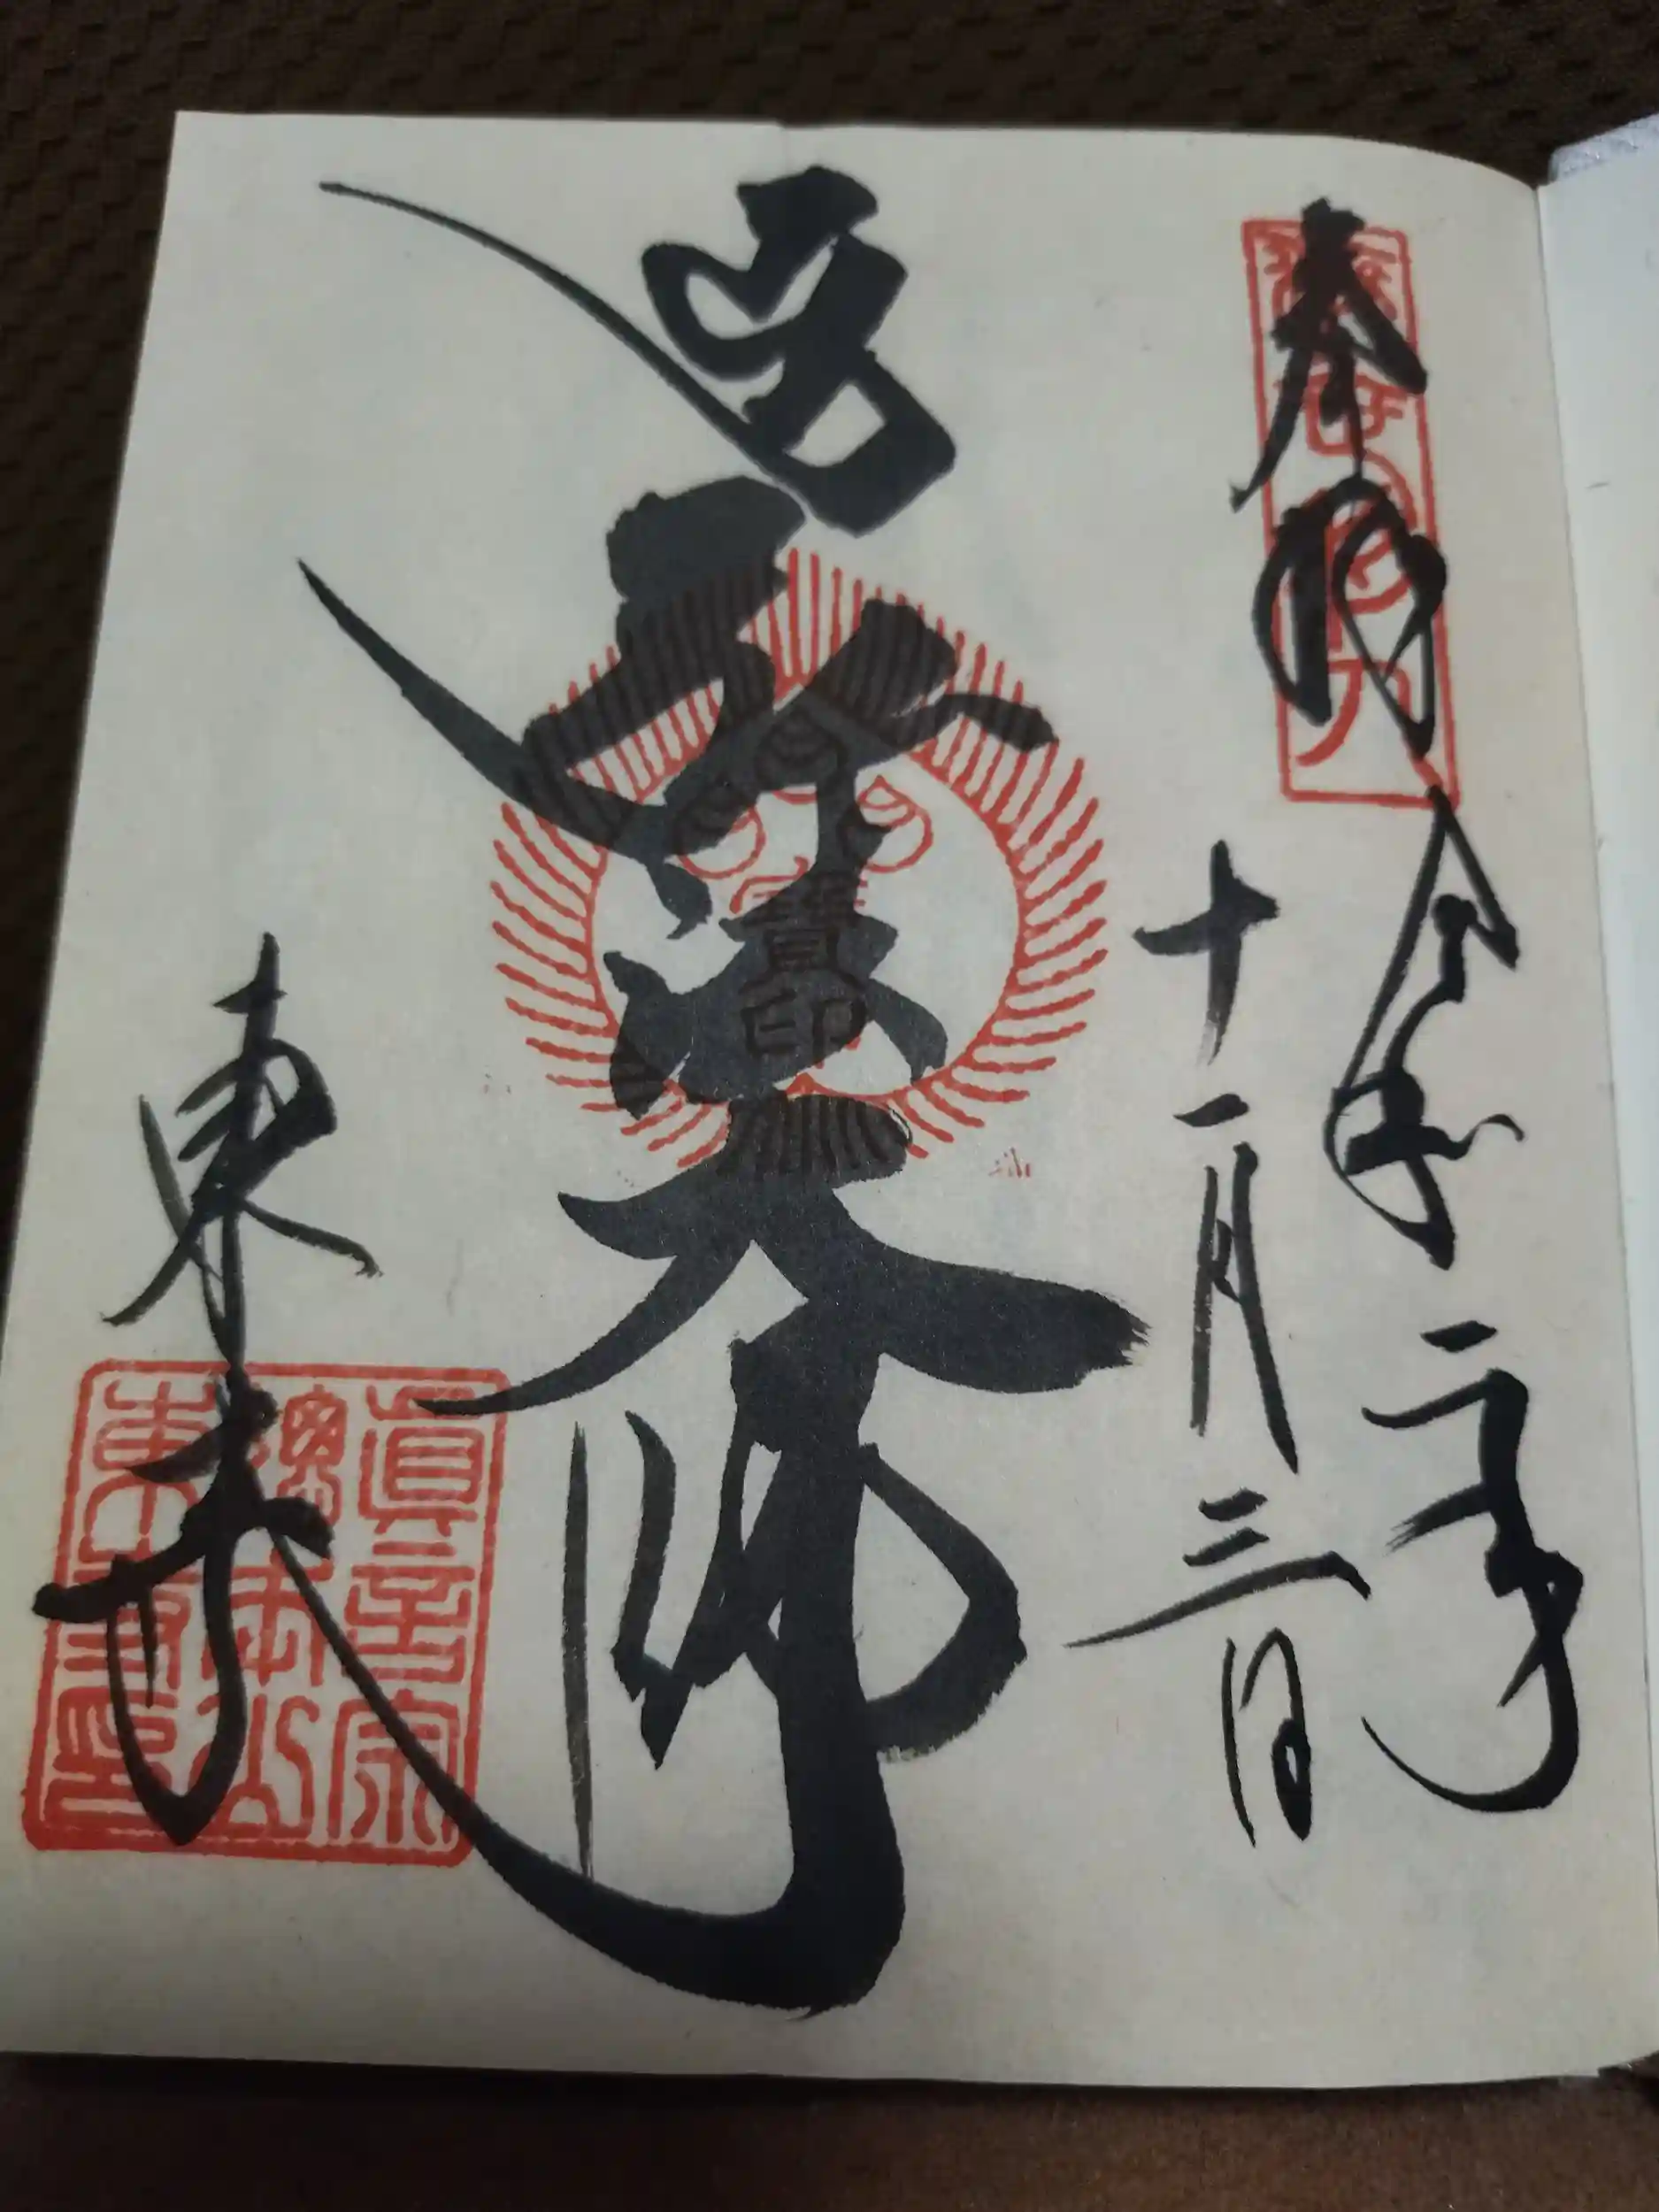 奉拝
令和二年
十一月三日
弘法大師
寶印
東寺
真言宗
総本山
東寺印